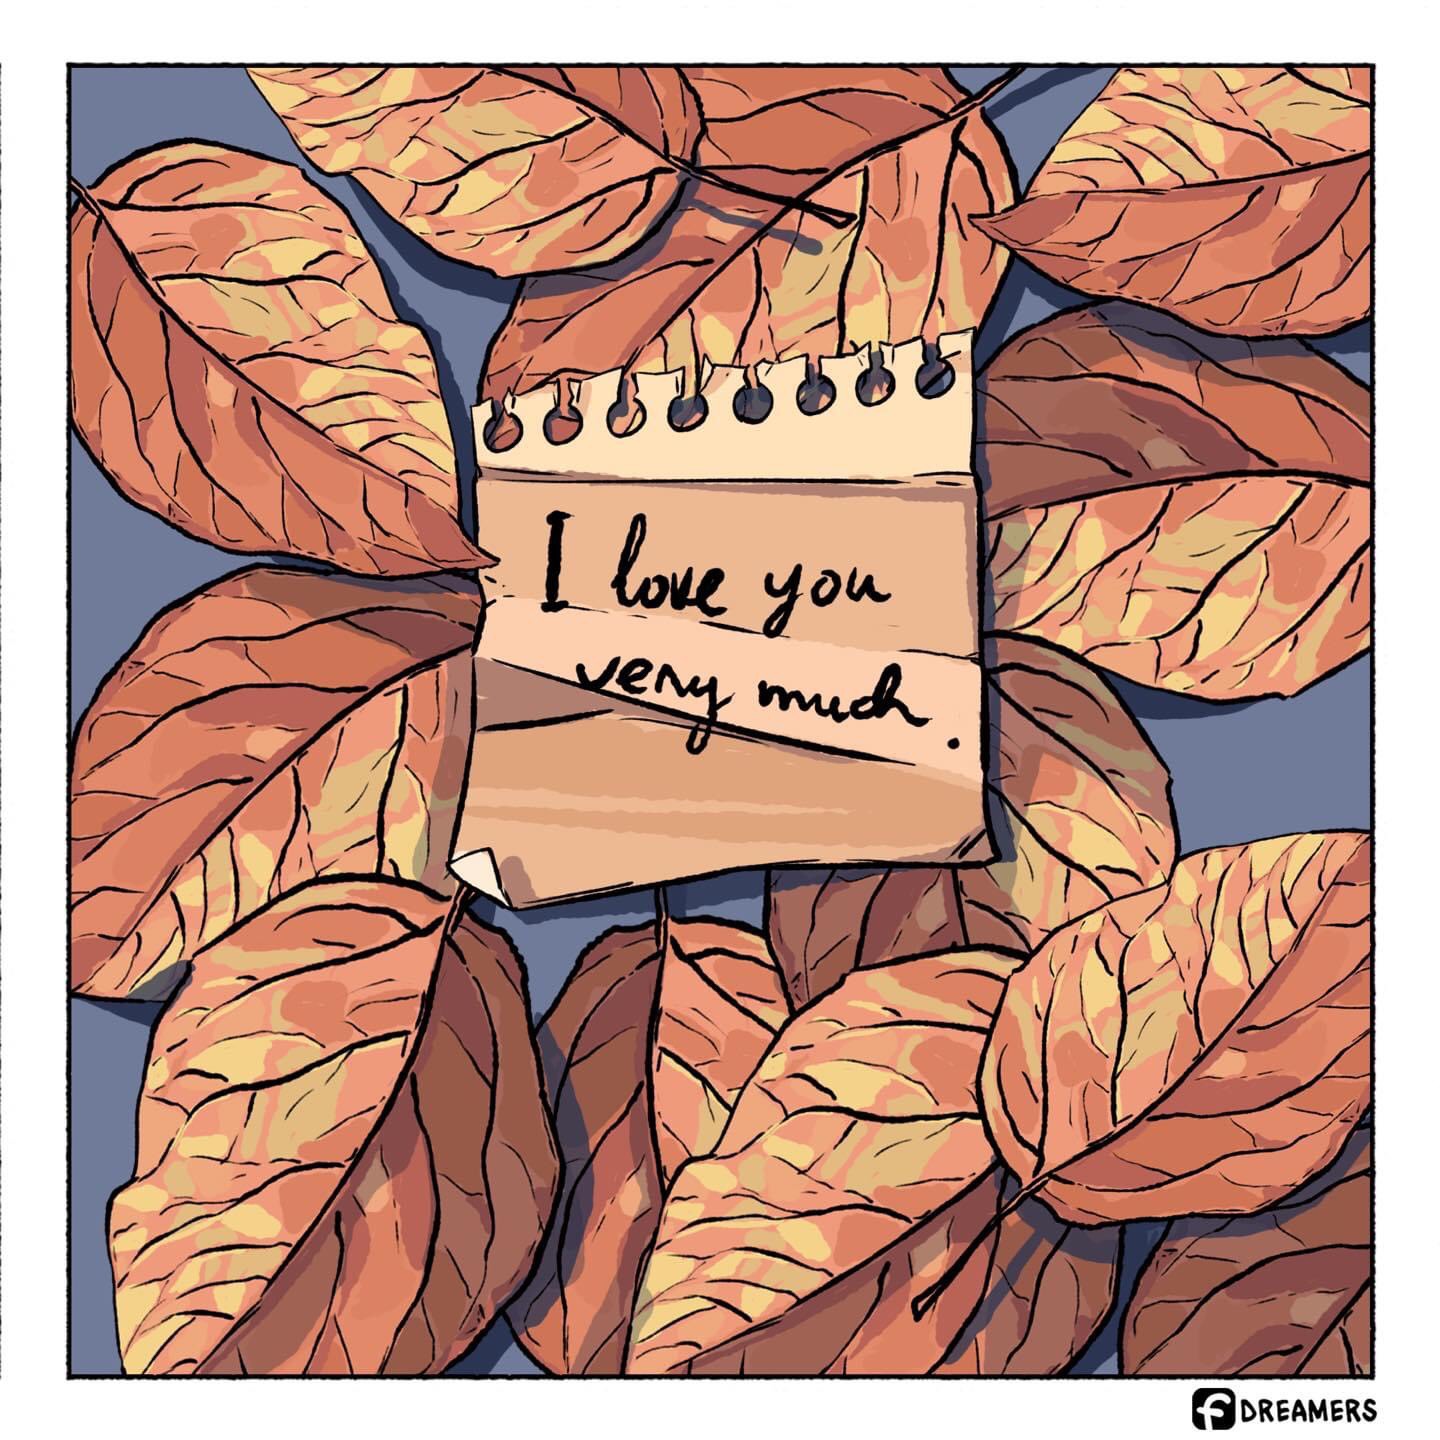 I love you
very much.
f DREAMERS